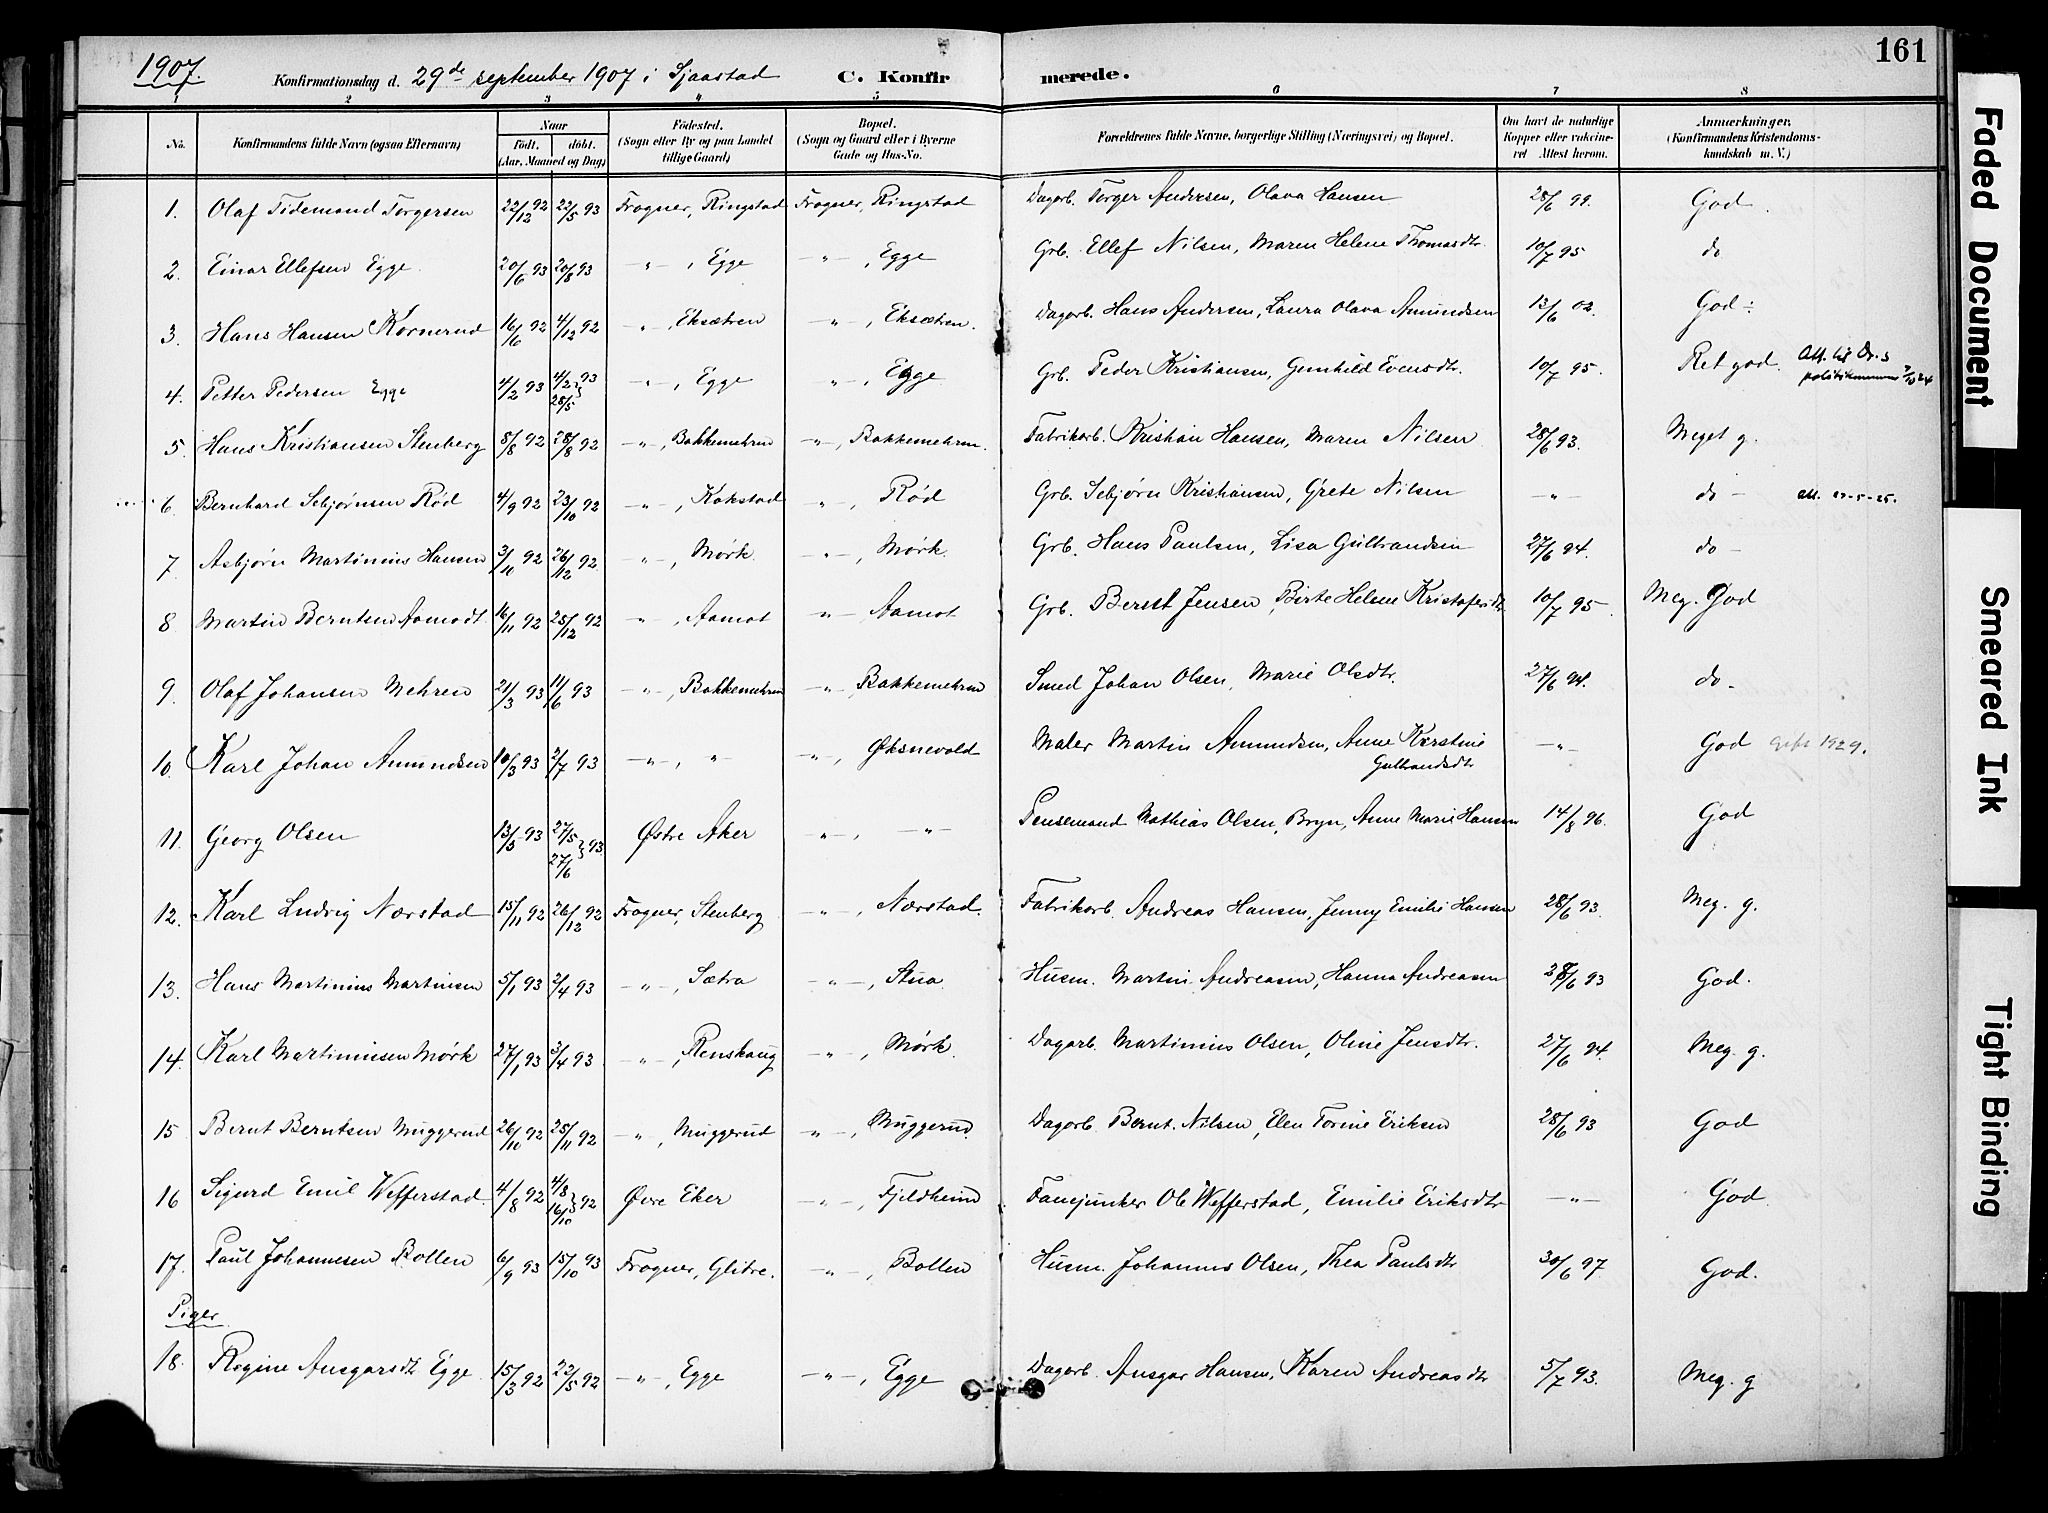 161
1907. Konfirmationsdag d. 29de september 1907 i Sjaastad C. Konfirmerede.
1 2 3 4 5 6 7 8
No. Konfirmandens fulde Navn (ogsaa Efternavn) Naar født. døbt. (Aar, Maaned og Dag) Fødested. (Sogn eller By og paa Landet tillige Gaard) Bopæl. (Sogn og Gaard eller i Byerne Gade og Hus-No. Forældrenes fulde Navne, borgerlige Stilling (Næringsvei) og Bopæl. Om havt de naturlige Kopper eller vaccineret Attest herom. Anmærkninger. (Konfirmandens Kristendomskundskab m. V.)
1. Olaf Tidemand Torgersen 22/12 92 22/5 93 Frogner, Ringstad Frogner, Ringstad Dagarb. Torger Andersen, Olava Hansen 28/6 99. God.
2. Einar Ellefsen Egge. 20/6 93 20/8 93 -"-, Egge -"-, Egge Grb. Ellef Nilsen, Maren Helene Thomasdtr 10/7 95 do
3. Hans Hansen Kornerud 16/6 92 4/12 92 -"-, Eksætren -"-, Eksætren. Dagarb. Hans Andersen, Laura Olava Amundsen 13/6 02. God ÷
4. Petter Pedersen Egge 4/2 93 4/2 93 28/5 -"-, Egge -"-, Egge Grb. Peder Kristiansen, Gunhild Evensdtr. 10/7 95. Ret god. Att. til Dr.s
5. Hans Kristiansen Stenberg 8/8 92 28/8 92 -"-, Bakkemehren -"-, Bakkemehren. Fabrikarb. Kristian Hansen, Maren Nilsen 28/6 93. Meget g.
6. Bernhard Sebjørnsen Rød 4/9 92 23/10 92 -"-, Kokstad -"-, Rød Grb. Sebjørn Kristiansen, Grete Nilsen -"- do - att. 27-5-25.
7. Asbjørn Martinius Hansen 3/10 92 26/12 92. -"-, Mørk -"-, Mørk. Grb. Hans Paulsen, Lisa Gulbrandsen 27/6 94. do -
8 Martin Berntsen Aamodt. 16/11 92 25/12 92 -"-, Aamot -"- Aamot Grb. Bernt Jensen, Birte Helene Kristofersdtr 10/7 95. Meg. God
9. Olaf Johansen Mehren 21/3 93 11/6 93 -"-, Bakkemehren -"-, Bakkemehren Smed Johan Olsen, Marie Olsdtr. 27/6 94. do -
10. Karl Johan Amundsen 10/3 93 2/7 93 -"-, " -"-, Øksnevold Maler Martin Amundsen, Anne Kirstine Gulbrandsdtr -"- God gift 1929.
11. Georg Olsen 13/5 93 27/5 27/6 93. Østre Aker -"-, -"- Pensemand Mathias Olsen, Bryn, Anne Marie Hansen 14/8 96. God
12. Karl Ludvig Nærstad 15/11 92 26/12 92 Frogner, Stenberg -"-, Nærstad. Fabrikarb. Andreas Hansen, Jenny Emilie Hansen 28/6 93. Meg. g.
13. Hans Martinius Martinsen 5/1 93 2/4 93 -"-, Sætra -"-, Stua Husm. Martin Andreasen, Hanna Andreasen 28/6 93 God.
14. Karl Martiniusen Mørk 27/1 93 3/4 93 -"-, Renskaug -"-, Mørk. Dagarb. Martinius Olsen, Oline Jensdtr. 27/6 94. Meg. g.
15 Bernt Berntsen Muggerud 26/10 92 25/11 92 -"-, Muggerud -"-, Muggerud. Dagarb. Bernt Nilsen, Elen Torine Eriksen 28/6 93 God
16 Sigurd Emil Wefferstad 4/8 92 4/8 16/10 92 Øvre Eker -"-, Fjeldheim Fanejunker Ole Wefferstad, Emilie Eriksdtr -"- God.
17. Paul Johannesen Bollen 6/9 93 15/10 93 Frogner, Glitre. -"-, Bollen Husm. Johannes Olsen, Thea Paulsdtr 30/6 97. God.
Piger
18. Regine Ansgarsdtr Egge 15/3 92 22/5 92 -"-, Egge -"-, Egge Dagarb. Ansgar Hansen, Karen Andreasdtr 5/7 93. Meg. g
Faded Document
Smeared Ink
Tight Binding